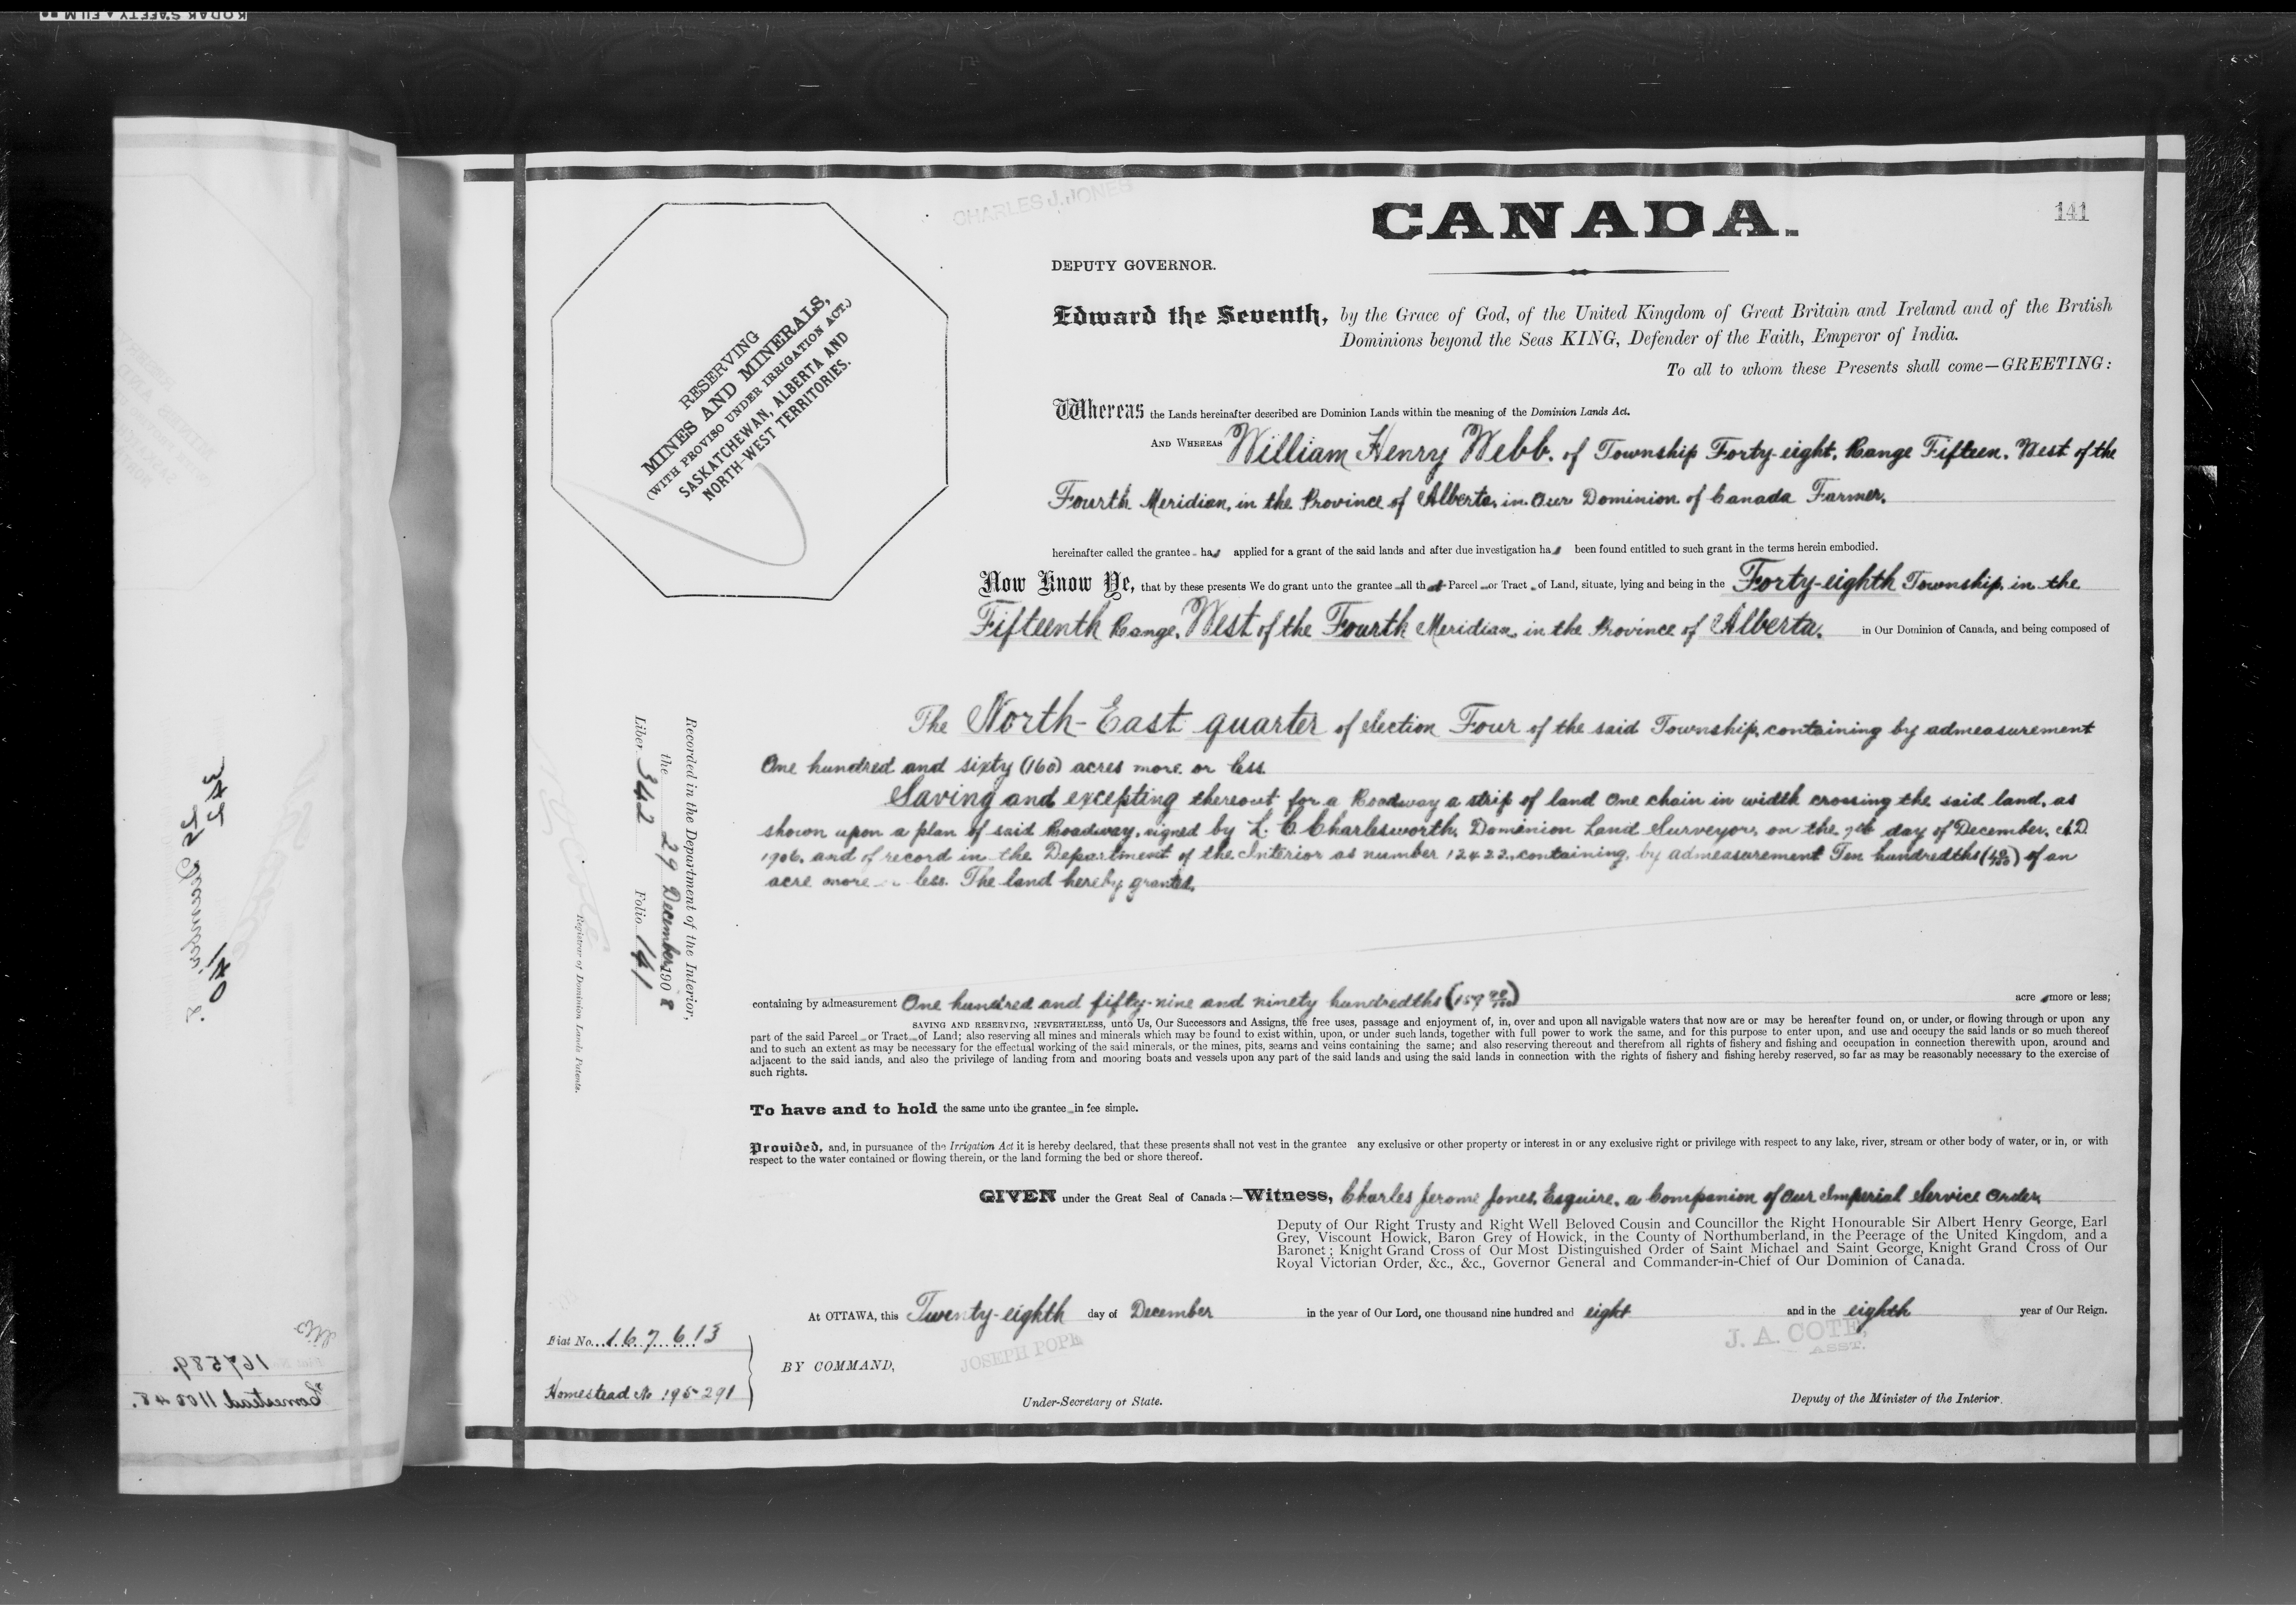 KODAK SAFETY FILM
141
CHARLES J. JONES
CANADA.
DEPUTY GOVERNOR.
Edward the Seventh, by the Grace of God, of the United Kingdom of Great Britain and Ireland and of the British
Dominions beyond the Seas KING, Defender of the Faith, Emperor of India.
To all to whom these Presents shall come—GREETING:
RESERVING
MINES AND MINERALS,
(WITH PROVISO UNDER IRRIGATION ACT.)
SASKATCHEWAN, ALBERTA AND
NORTH-WEST TERRITORIES.
Whereas the Lands hereinafter described are Dominion Lands within the meaning of the Dominion Lands Act.
AND WHEREAS William Henry Webb, of Township Forty-eight, Range Fifteen, West of the
Fourth Meridian, in the Province of Alberta, in Our Dominion of Canada Farmer,
hereinafter called the grantee has applied for a grant of the said lands and after due investigation has been found entitled to such grant in the terms herein embodied.
Now Know Ye, that by these presents We do grant unto the grantee all that Parcel or Tract of Land, situate, lying and being in the Forty-eighth Township, in the
Fifteenth Range, West of the Fourth Meridian, in the Province of Alberta, in Our Dominion of Canada, and being composed of
The North-East quarter of Section Four of the said Township, containing by admeasurement
One hundred and sixty (160) acres more or less.
Saving and excepting thereout for a Roadway a strip of land One chain in width crossing the said land, as
shown upon a plan of said Roadway, signed by L. C. Charlesworth, Dominion Land Surveyor, on the 7th day of December, A.D.
1906, and of record in the Department of the Interior as number 12422, containing, by admeasurement Ten hundredths (10/100) of an
acre more less. The land hereby granted,
containing by admeasurement One hundred and fifty-nine and ninety hundredths (159 90/100) acre more or less;
SAVING AND RESERVING, NEVERTHELESS, unto Us, Our Successors and Assigns, the free uses, passage and enjoyment of, in, over and upon all navigable waters that now are or may be hereafter found on, or under, or flowing through or upon any
part of the said Parcel or Tract of Land; also reserving all mines and minerals which may be found to exist within, upon, or under such lands, together with full power to work the same, and for this purpose to enter upon, and use and occupy the said lands or so much thereof
and to such an extent as may be necessary for the effectual working of the said minerals, or the mines, pits, seams and veins containing the same; and also reserving thereout and therefrom all rights of fishery and fishing and occupation in connection therewith upon, around and
adjacent to the said lands, and also the privilege of landing from and mooring boats and vessels upon any part of the said lands and using the said lands in connection with the rights of fishery and fishing hereby reserved, so far as may be reasonably necessary to the exercise of
such rights.
To have and to hold the same unto the grantee in fee simple.
Provided, and, in pursuance of the Irrigation Act it is hereby declared, that these presents shall not vest in the grantee any exclusive or other property or interest in or any exclusive right or privilege with respect to any lake, river, stream or other body of water, or in, or with
respect to the water contained or flowing therein, or the land forming the bed or shore thereof.
GIVEN under the Great Seal of Canada:—Witness, Charles Jerome Jones, Esquire, a Companion of Our Imperial Service Order,
Deputy of Our Right Trusty and Right Well Beloved Cousin and Councillor the Right Honourable Sir Albert Henry George, Earl
Grey, Viscount Howick, Baron Grey of Howick, in the County of Northumberland, in the Peerage of the United Kingdom, and a
Baronet; Knight Grand Cross of Our Most Distinguished Order of Saint Michael and Saint George, Knight Grand Cross of Our
Royal Victorian Order, &c., &c., Governor General and Commander-in-Chief of Our Dominion of Canada.
At OTTAWA, this Twenty-eighth day of December in the year of Our Lord, one thousand nine hundred and eight and in the eighth year of Our Reign.
BY COMMAND,
JOSEPH POPE
Under-Secretary of State.
J. A. COTE,
ASST.
Deputy of the Minister of the Interior.
Recorded in the Department of the Interior,
the 29 December 1908
Liber 342 Folio 141
Registrar of Dominion Lands Patents.
Fiat No. 167613
Homestead No 195291
342
140
167589.
Homestead 110048.